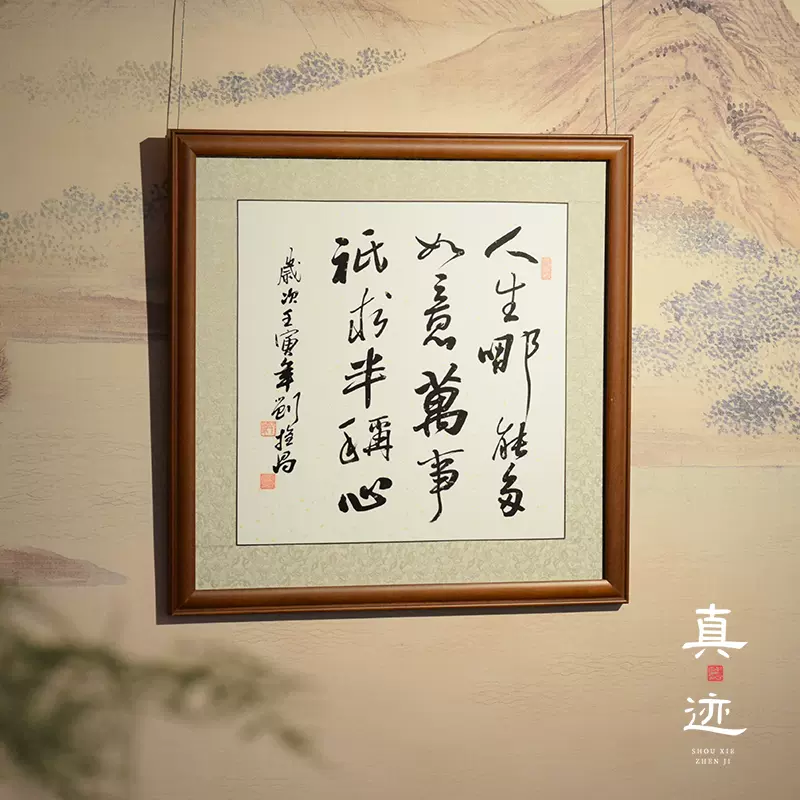 人生哪能多
如意萬事
祇求半稱心
歲次壬寅年劉
真迹
SHOU XIE
ZHEN JI